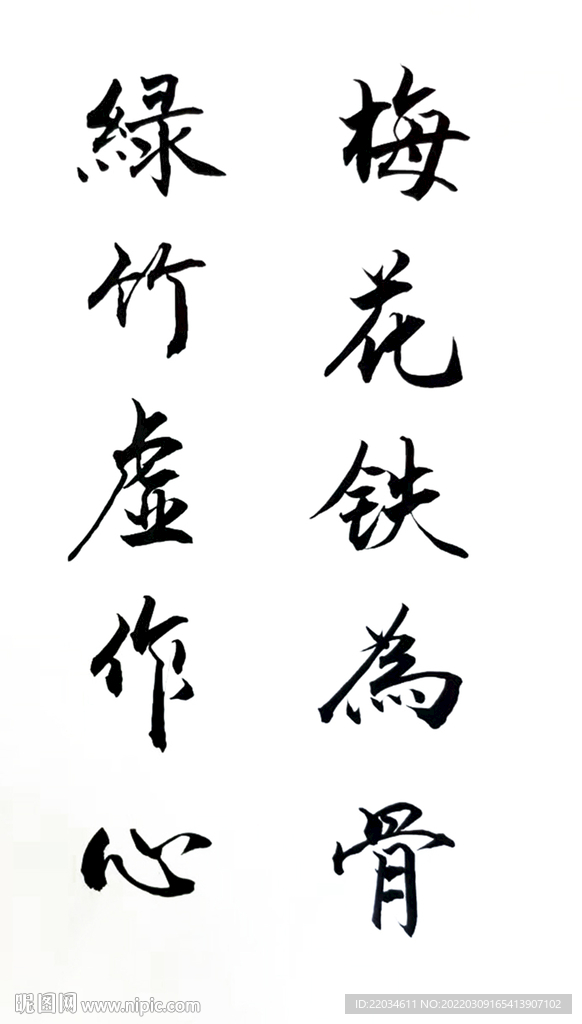 梅花铁為骨
緑竹虚作心
昵图网 www.nipic.com
ID:22034611 NO:20220309165413907102